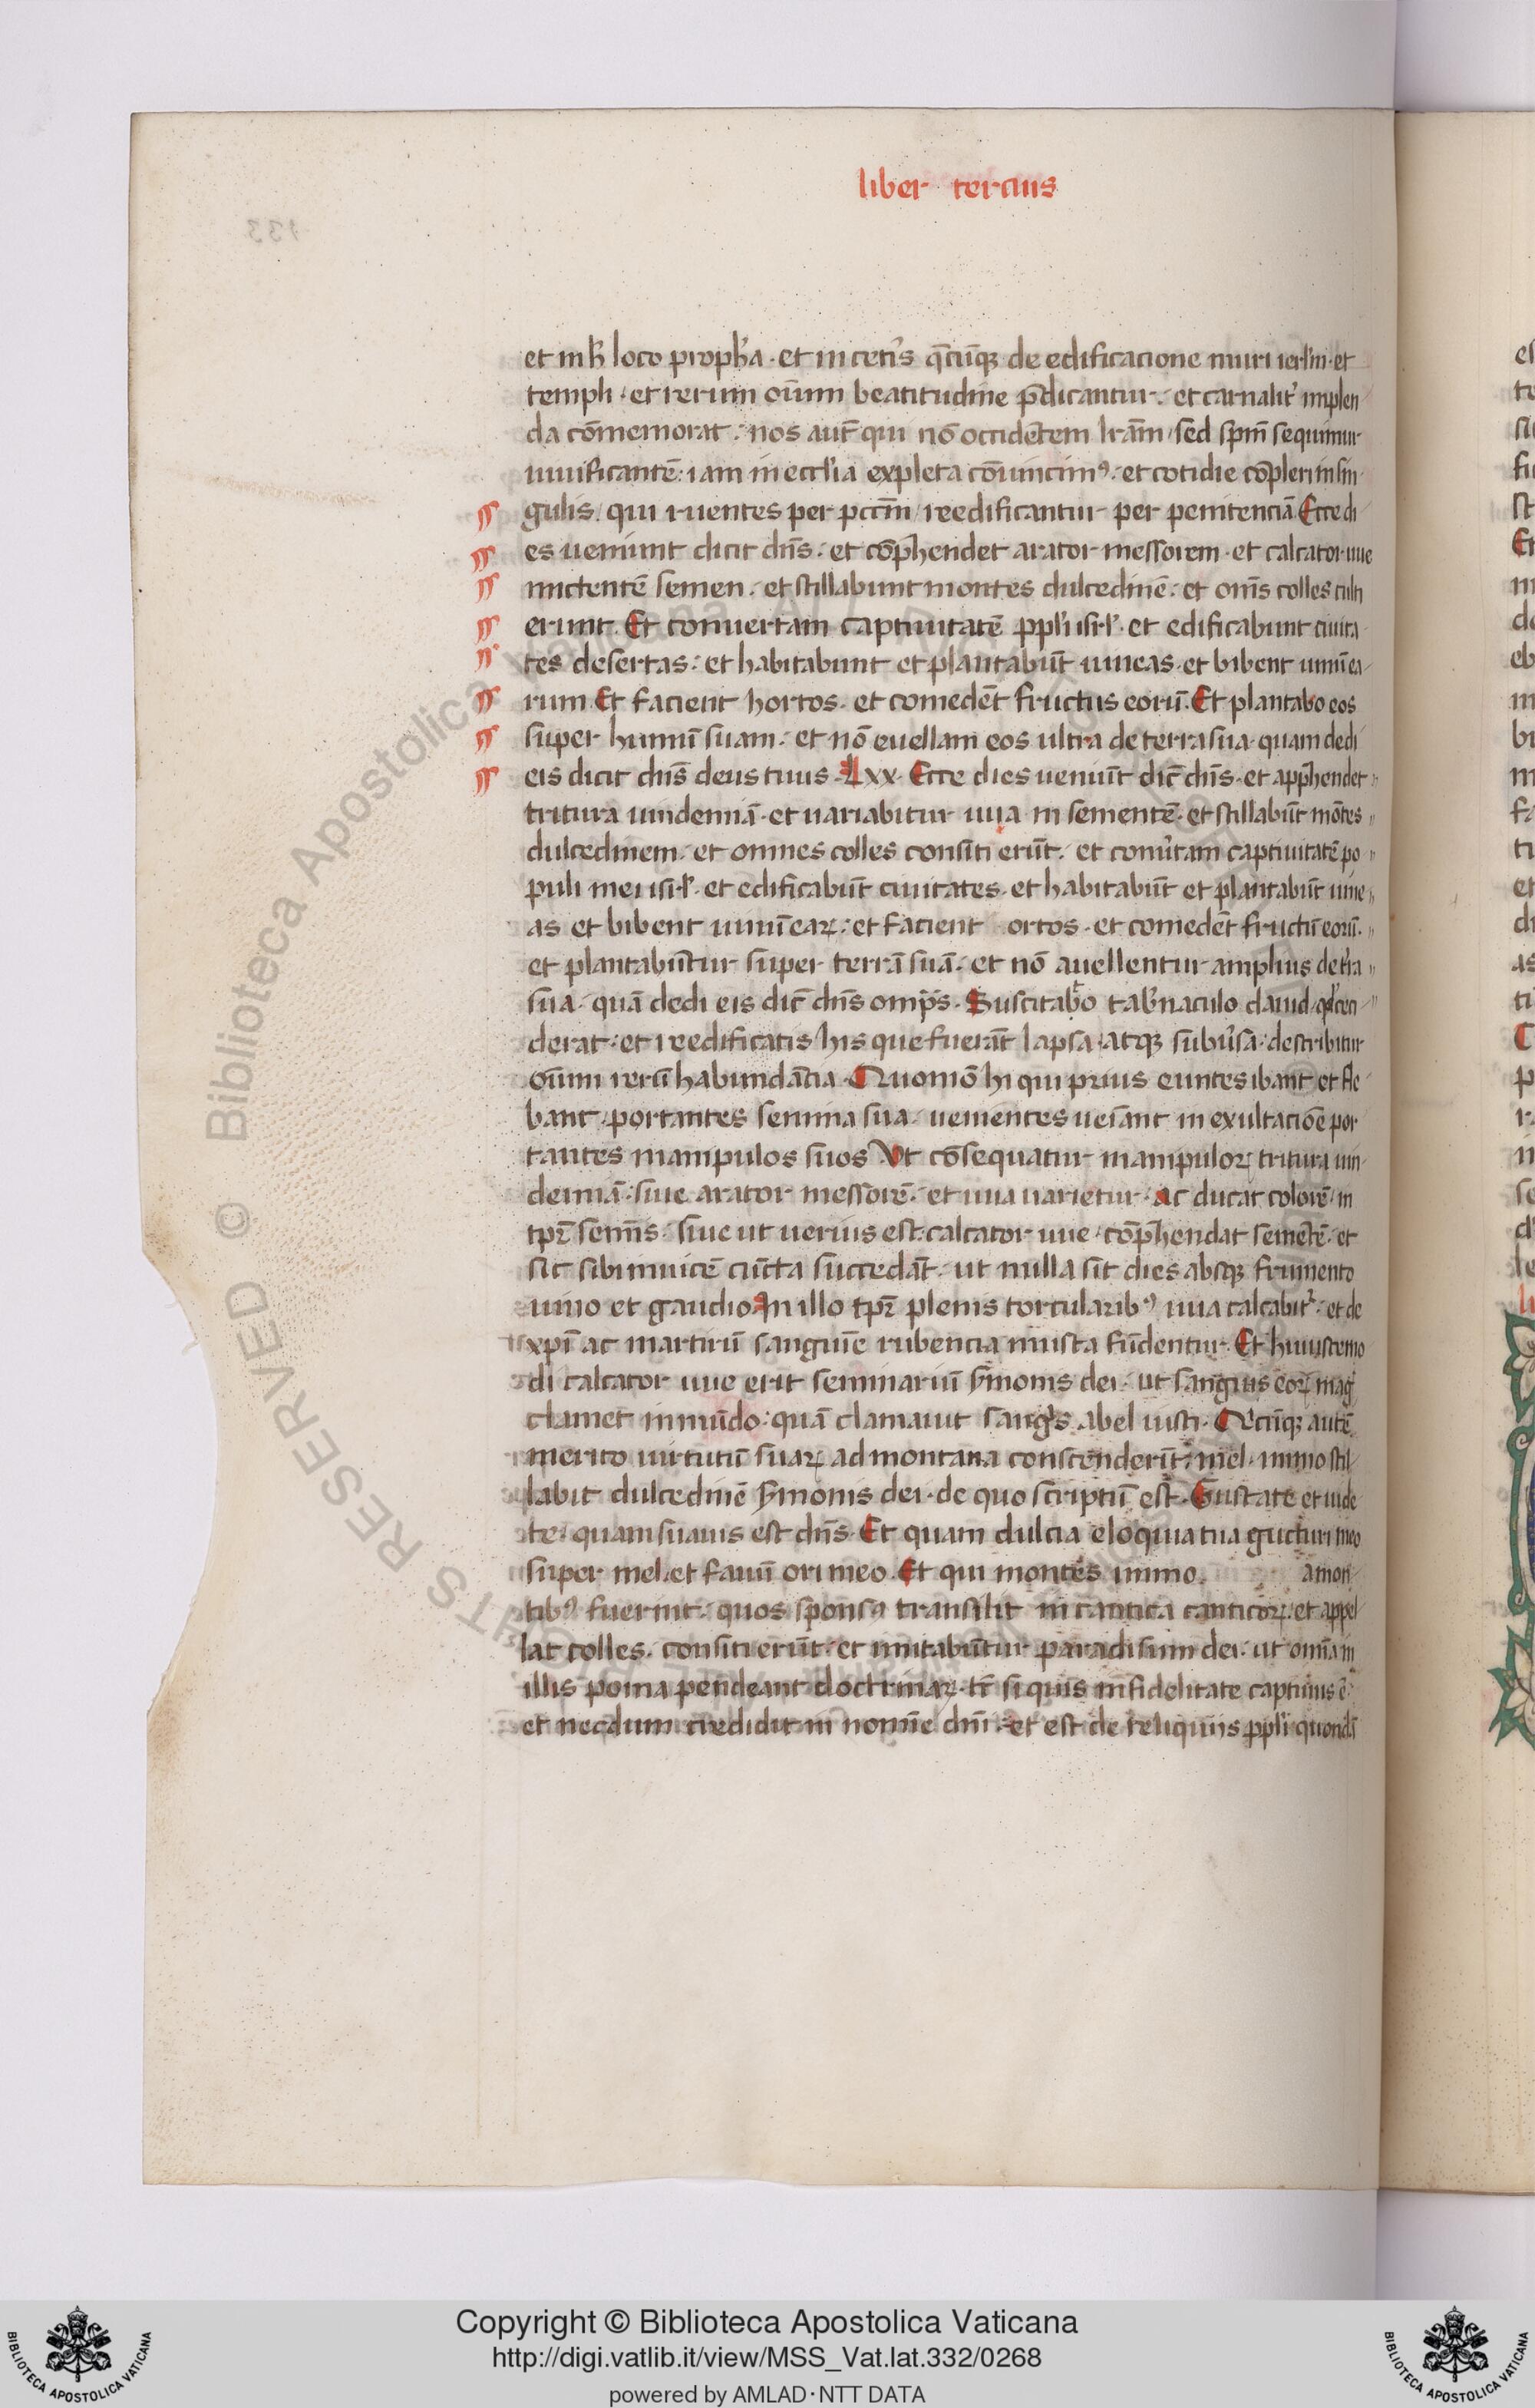 liber tercius
133
et in h̄ loco proph̄a · et in ceti̅s q̄cūq; de edificacione muri ierl̄m · et
templi · et rerum om̄um beatitudine p̄dicantur · et carnalit̄ implen
da cōmemorat · nos aut̄ qui nō occidētem lr̄am / sed sp̄m sequimur
uiuificantē · iam in eccl̄ia expleta cōuincimꝰ · et cotidie cōpleri in sin
gulis / qui ruentes per pccm̄ / reedificantur per penitenciā Ecce di
es ueniunt dicit dn̄s · et cōp̄hendet arator messorem · et calcator uue
mictentē semen · et stillabunt montes dulcedinē · et om̄s colles culti
erunt · Et conuertam captiuitatē ppl̄i isrl̄ · et edificabunt ciuita
tes desertas · et habitabunt et plantabūt uineas · et bibent uinū ea
rum Et facient hortos · et comedēt fructus eorū · Et plantabo eos
super humū suam · et nō euellam eos ultra de terra sua · quam dedi
eis dicit dn̄s deus tuus · Lxx · Ecce dies ueniūt dic̄ dn̄s · et app̄hendet
tritura uindemiā · et uariabitur uua in sementē · et stillabūt mōtes
dulcedinem · et omnes colles consiti erūt · et conūtam captiuitatē po
puli mei isrl̄ · et edificabūt ciuitates · et habitabūt et plantabūt uine
as et bibent uinū eaꝝ · et facient ortos · et comedēt fructū eorū ·
et plantabūtur super terrā suā · et nō auellentur amplius de tr̄a
sua · quā dedi eis dic̄ dn̄s omp̄s · Suscitato tab̄naculo dauid / qd̄ ceci
derat · et reedificatis his que fuerāt lapsa · atq; subūsa · describitur
om̄um rerū habundācia · Quomō hi qui prius euntes ibant et fle
bant · portantes semina sua · uenientes ueīant in exultaciōe por
tantes manipulos suos Vt cōsequatur manipuloꝝ tritura uin
demiā · siue arator messorē · et uua uarietur · ac ducat colorē in
tpr̄ semīs · siue ut uerius est · calcator uue · cōp̄hendat semētē · et
sic sibi inuicē cūcta succedāt · ut nulla sit dies absq; frumento
uino et gaudio In illo tpr̄ plenis torcularibꝰ uua calcabit̄ · et de
xp̄i ac martirū sanguīe rubencia musta fūdentur · Et huiuscemo
di calcator uue erit seminariū s̄monis dei · ut sanguis eoꝝ mag̅
clamet in mūdo · quā clamauit sang̅s abel iusti · Qcūq; autē
merito uirtutū suaꝝ ad montana conscenderīt · mel · immo stil
labit dulcedinē s̄monis dei · de quo scriptū est · Gustate et uide
te · quam suauis est dn̄s · Et quam dulcia eloquia tua gucturi meo
super mel · et fauū ori meo · Et qui montes immo a mon
tibꝰ fuerint · quos sponsa transilit in cantica canticoꝝ · et appel
lat colles · consiti erūt · et imitabūtur paradisum dei · ut omīa in
illis poma pendeant doctrinaꝝ · et si quis infidelitate captiuus ē ·
et necdum credidit in nomīe dn̄i · et est de reliquiis ppl̄i quondā
Copyright © Biblioteca Apostolica Vaticana
http://digi.vatlib.it/view/MSS_Vat.lat.332/0268
powered by AMLAD·NTT DATA